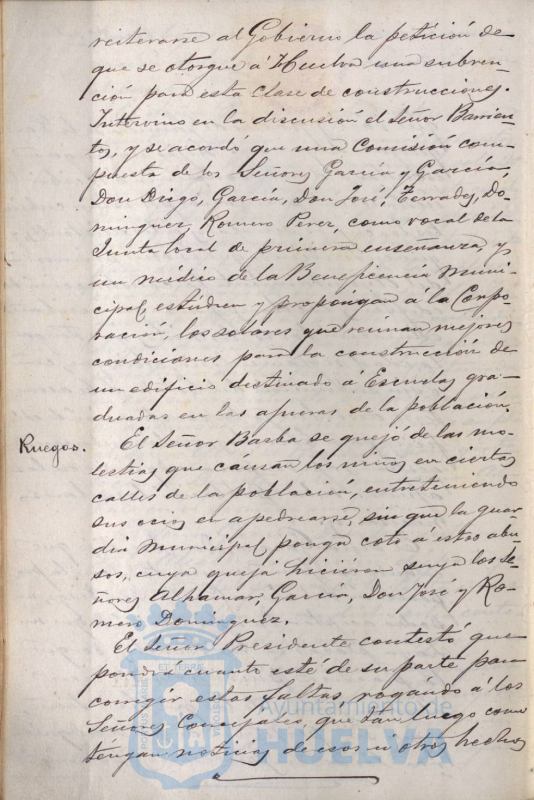 reiterarse al Gobierno la petición de
que se otorgue á Huelva una subven-
ción para esta clase de construcciones.
Intervino en la discusión el Señor Barrien-
tos, y se acordó que una Comisión com-
puesta de los Señores García y García,
Don Diego, García, Don José, Terrades, Do-
minguez, Romero Perez, como vocal de la
Junta local de primera enseñanza, y
un médico de la Beneficencia Muni-
cipal, estudien y propongan á la Corpo-
ración, los solares que reunan mejores
condiciones para la construcción de
un edificio destinado á Escuelas gra-
duadas en las afueras de la población.
Ruegos. El Señor Barba se quejó de las mo-
lestias que causan los niños en ciertas
calles de la población, entreteniendo
sus ocios en apedrearse, sin que la guar
dia Municipal ponga coto á estos abu-
sos, cuya queja hicieron suya los Se-
ñores Alhamar, García, Don José y Ro-
mero Dominguez.
El Señor Presidente contestó que
pondrá cuanto esté de su parte para
corregir estas faltas, rogando á los
Señores Concejales, que tan luego como
tengan noticias de esos ú otros hechos
Ayuntamiento de
HUELVA